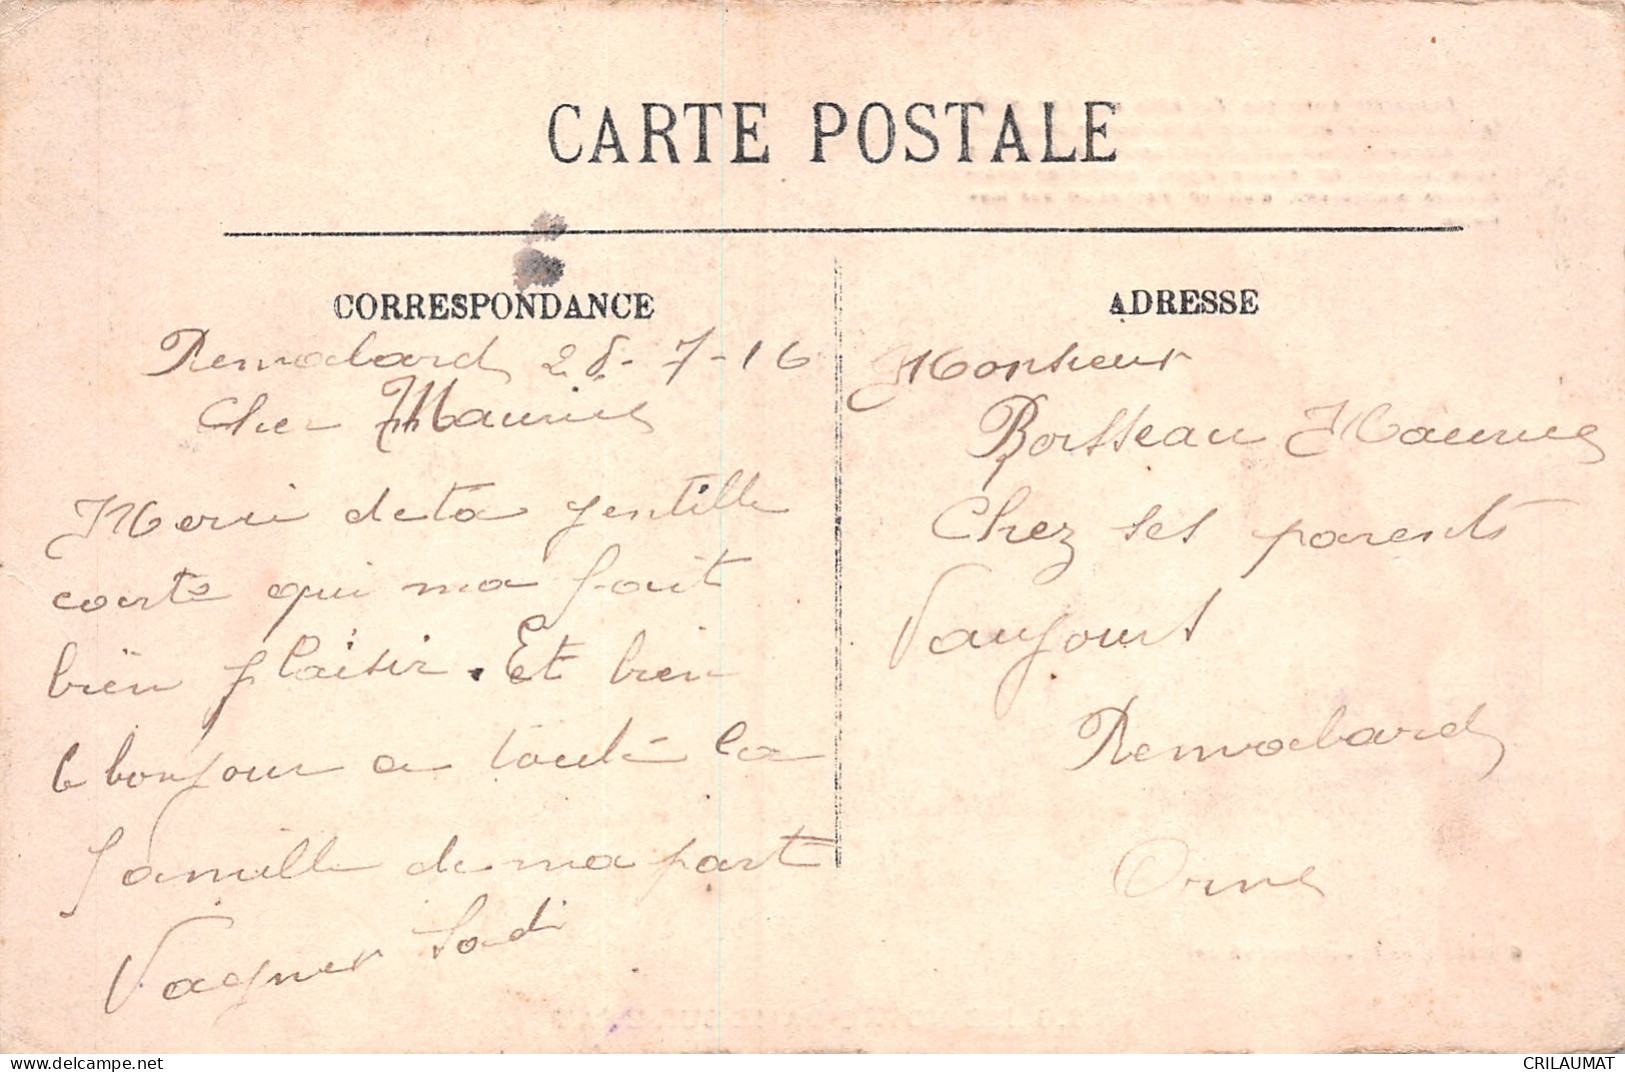 CARTE POSTALE
CORRESPONDANCE
Remalard 28-7-16
Cher Maurice
Merci de ta gentille
carte qui ma fait
bien plaisir. Et bien
le bonjour a toute la
famille de ma part
Vagner Sadi
ADRESSE
Monsieur
Boisseau Maurice
Chez ses parents
Vaujours
Remalard
Orne
www.delcampe.net
CRILAUMAT